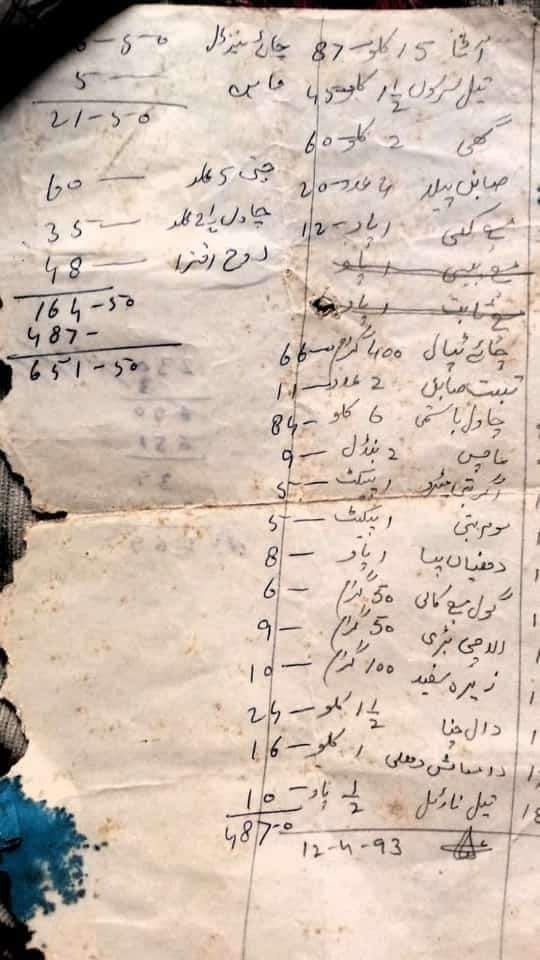 آٹا 15 کلو - 87
تیل سرسوں 1½ کلو - 45
گھی 2 کلو - 60
صابن پیلا 4 عدد - 20
مرچ کٹی 1 پاؤ - 12
مرچ پسی 1 پاؤ
مرچ ثابت 1 پاؤ
چائے ٹپال 400 گرام - 66
تبت صابن 2 عدد - 11
چاول باسمتی 6 کلو - 84
ماچس 2 بنڈل - 9
اگربتی 1 پیکٹ - 5
موم بتی 1 پیکٹ - 5
دھنیاں پسا 1 پاؤ - 8
گول مرچ کالی 50 گرام - 6
الاچی بڑی 50 گرام - 9
زیرہ سفید 100 گرام - 10
دال چنا 1½ کلو - 24
دال ماش دھلی 1 کلو - 16
تیل ناریل ½ پاؤ - 10
487-0
12-4-93
چائے
5-0
ماچس 5
21-50
چینی 5 کلو - 60
چاول 2½ کلو - 35
روح افزا - 48
164-50
487-
651-50